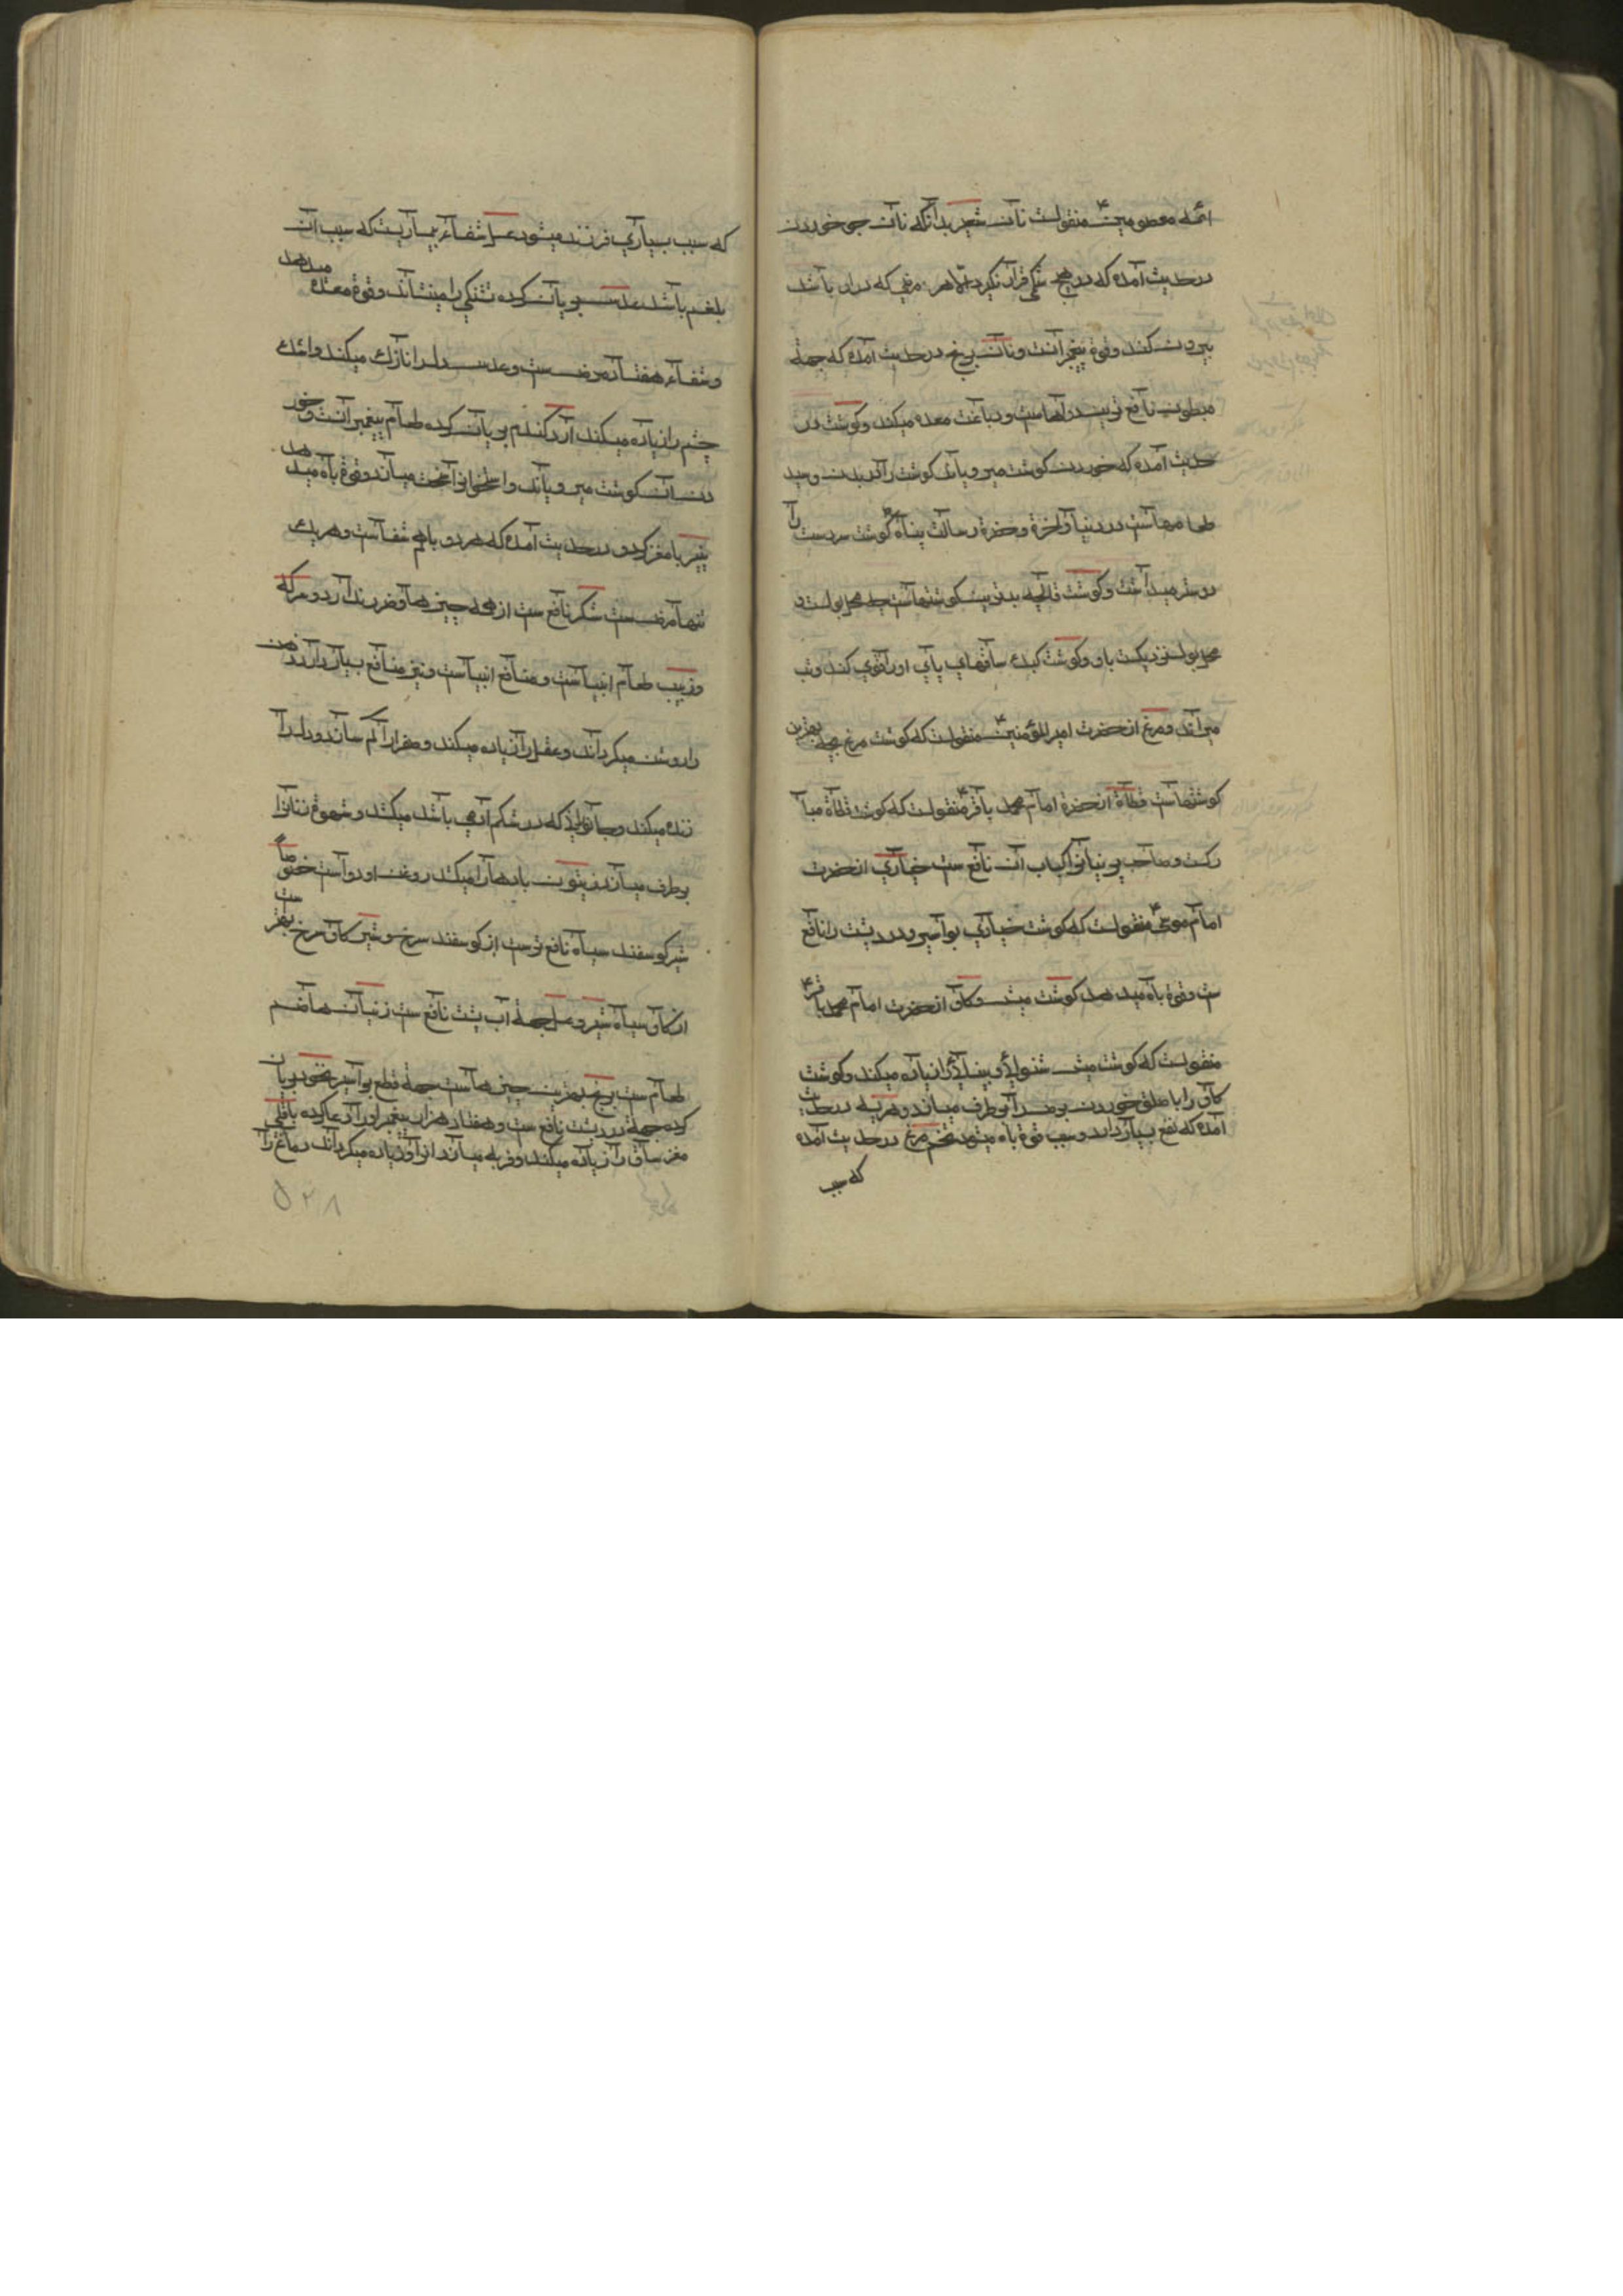 ائمه معصومین ع منقولست نان شعیر بدانکه نان جو خوردن
در حدیث آمده که در هیچ شکمی قرار نگیرد الا هر مرضی که در ان باشد
بیرون کند و قوة پیغمبرانست و نان برنج در حدیث آمده که جهة
مبطون نافع ترین دواهاست و دباغت معده میکند و گوشت در
حدیث آمده که خوردن گوشت میرویاند گوشت را در بدن و سید
طعامهاست در دنیا و اخرة و حضرة رسالت پناه ص گوشت سردست را
دوستر میداشت و گوشت
محل بول نزدیکست باو و گوشت کبک ساقهای پای او را قوی کند و تب
میراند و مرغ از حضرت امیر المؤمنین ع منقولست که گوشت مرغ بچه بهترین
گوشتهاست قطاة از حضرة امام محمد باقر ع منقولست که گوشت قطاة مبا
رکست و صاحب یرقانرا کباب آن نافع ست حباری از حضرت
امام موسی ع منقولست که گوشت حباری بواسیر و درد پشت را نافع
ست و قوة باه میدهد گوشت میش و گاو از حضرت امام محمد باقر ع
منقولست که گوشت میش شنوایی و بینایی را زیاده میکند و گوشت
گاو را با سلق خوردن برص را برطرف میسازد و هریسه در حدیث
آمده که نفع بسیار دارد و سبب قوة باه میشود تخم مرغ در حدیث آمده
که سبب
که سبب بسیاری فرزند میشود عسل شفاء بیماریست که سبب آن
بلغم باشد عدس بریان کرده تشنگی را مینشاند و قوة معده میدهد
و شفاء هفتاد مرض ست و عدس دل را نازک میکند و اشک
چشم را زیاده میکند آرد گندم بریان کرده طعام پیغمبرانست و خور
دن آن گوشت میرویاند و استخوان را سخت میسازد و قوة باه میدهد
پنیر با مغز گردو در حدیث آمده که هر دو باهم شفاست و هر یک
تنها مرض ست شکر نافع ست از همه چیزها و ضرر ندارد و سرکه
و زبیب طعام انبیاست و منافع انبیاست و نیز منافع بسیار دارد ذهن
را روشن میگرداند و عقل را زیاده میکند و صفرا را کم سازد و دل را
زنده میکند و جانورانی که در شکم آدمی باشد میکشد و شهوة زنانرا
برطرف میسازد زیتون بادها را میکشد روغن او دواست خصوصاً
شیر گوسفند سیاه نافع ترست از گوسفند سرخ و شیر گاو سرخ بهتر ست
از گاو سیاه شیر و عسل جهة آب پشت نافع ست زنیان هاضم
طعام ست برنج بهترین چیزهاست جهة قطع بواسیر نخود بریان
کرده جهة درد پشت نافع ست و هفتاد هزار پیغمبر او را دعا کرده باقلی
مغز ساق را زیاده میکند و فربه میسازد از او زیاده میگرداند دماغ را